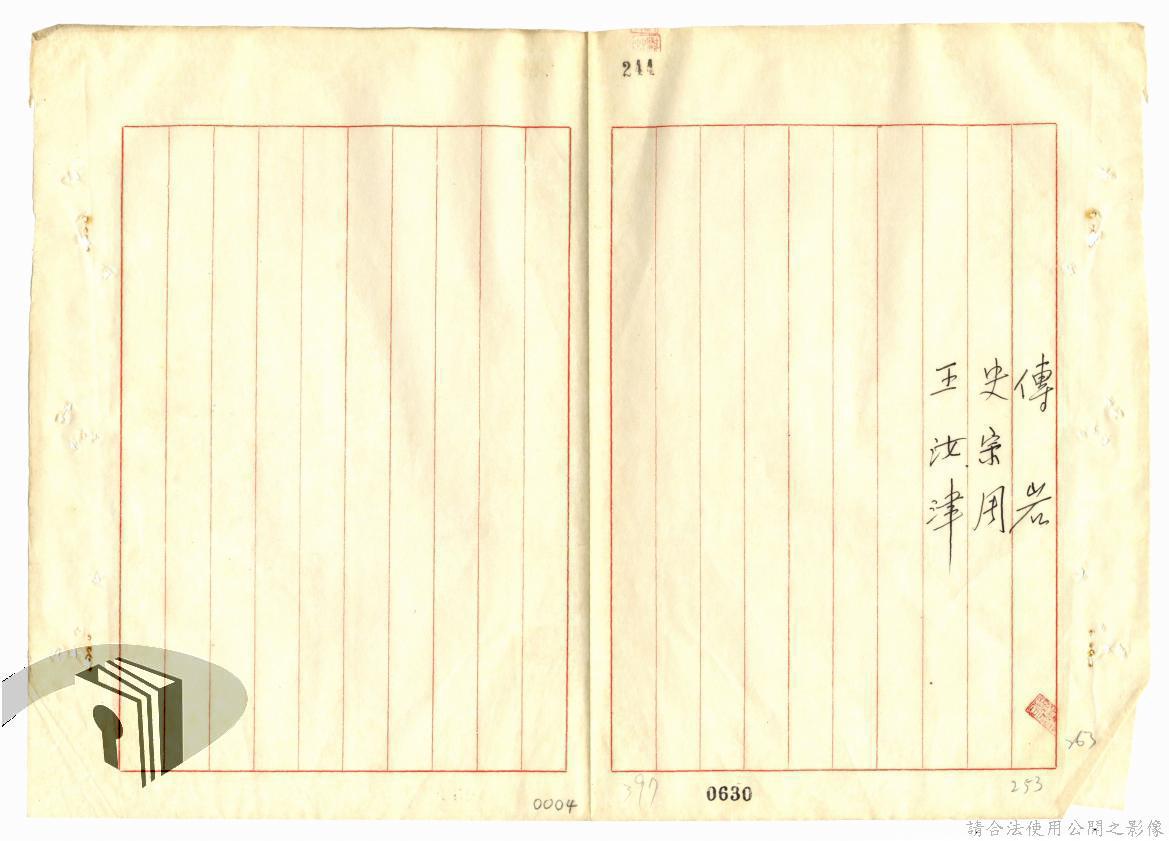 244
傳岩
史宗周
王汝津
253
0630
397
0004
請合法使用公開之影像